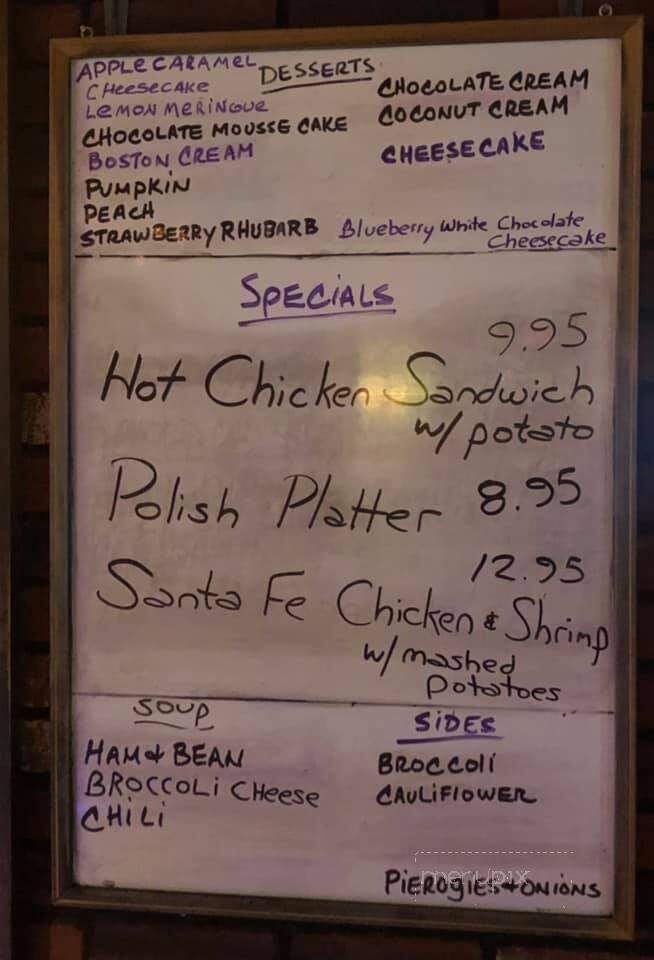 DESSERTS
APPLE CARAMEL
CHeeseCAKe
LeMON MeRiNGUe
CHOCOLATE MOUSSE CAKE
BOSTON CREAM
PUMPKiN
PEACH
STRAWBERRY RHUBARB
CHOCOLATE CREAM
COCONUT CREAM
CHEESECAKE
Blueberry White Chocolate
Cheesecake
SPECiALS
9.95
Hot Chicken Sandwich
w/ potato
Polish Platter 8.95
12.95
Santa Fe Chicken & Shrimp
w/ mashed
potatoes
SOUP
HAM & BEAN
BROCCOLi CHeese
CHiLi
SiDES
BROCCOLi
CAULiFlOWER
PiEROGiES & ONiONS
menupix